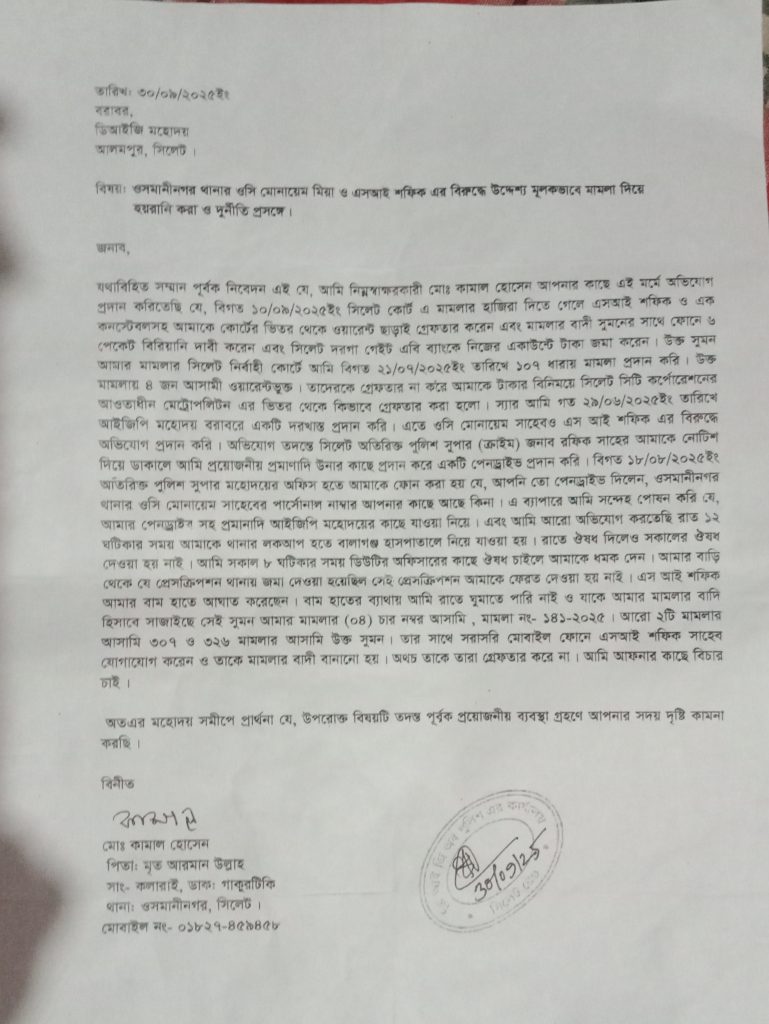 তারিখ: ৩০/০৯/২০২৫ইং
বরাবর,
ডিআইজি মহোদয়
আলমপুর, সিলেট ।
বিষয়: ওসমানীনগর থানার ওসি মোনায়েম মিয়া ও এসআই শফিক এর বিরুদ্ধে উদ্দেশ্য মূলকভাবে মামলা দিয়ে
হয়রানি করা ও দুর্নীতি প্রসঙ্গে ।
জনাব,
যথাবিহিত সম্মান পূর্বক নিবেদন এই যে, আমি নিম্নস্বাক্ষরকারী মোঃ কামাল হোসেন আপনার কাছে এই মর্মে অভিযোগ
প্রদান করিতেছি যে, বিগত ১০/০৯/২০২৫ইং সিলেট কোর্ট এ মামলার হাজিরা দিতে গেলে এসআই শফিক ও এক
কনস্টেবলসহ আমাকে কোর্টের ভিতর থেকে ওয়ারেন্ট ছাড়াই গ্রেফতার করেন এবং মামলার বাদী সুমনের সাথে ফোনে ৬
পেকেট বিরিয়ানি দাবী করেন এবং সিলেট দরগা গেইট এবি ব্যাংকে নিজের একাউন্টে টাকা জমা করেন । উক্ত সুমন
আমার মামলার সিলেট নির্বাহী কোর্টে আমি বিগত ২১/০৭/২০২৫ইং তারিখে ১০৭ ধারায় মামলা প্রদান করি । উক্ত
মামলায় ৪ জন আসামী ওয়ারেন্টভুক্ত । তাদেরকে গ্রেফতার না করে আমাকে টাকার বিনিময়ে সিলেট সিটি কর্পোরেশনের
আওতাধীন মেট্রোপলিটন এর ভিতর থেকে কিভাবে গ্রেফতার করা হলো । স্যার আমি গত ২৯/০৬/২০২৫ইং তারিখে
আইজিপি মহোদয় বরাবরে একটি দরখাস্ত প্রদান করি । এতে ওসি মোনায়েম সাহেবও এস আই শফিক এর বিরুদ্ধে
অভিযোগ প্রদান করি । অভিযোগ তদন্তে সিলেট অতিরিক্ত পুলিশ সুপার (ক্রাইম) জনাব রফিক সাহের আমাকে নোটিশ
দিয়ে ডাকালে আমি প্রয়োজনীয় প্রমাণাদি উনার কাছে প্রদান করে একটি পেনড্রাইভ প্রদান করি । বিগত ১৮/০৮/২০২৫ইং
অতিরিক্ত পুলিশ সুপার মহোদয়ের অফিস হতে আমাকে ফোন করা হয় যে, আপনি তো পেনড্রাইভ দিলেন, ওসমানীনগর
থানার ওসি মোনায়েম সাহেবের পার্সোনাল নাম্বার আপনার কাছে আছে কিনা । এ ব্যাপারে আমি সন্দেহ পোষন করি যে,
আমার পেনড্রাইব সহ প্রমানাদি আইজিপি মহোদয়ের কাছে যাওয়া নিয়ে । এবং আমি আরো অভিযোগ করতেছি রাত ১২
ঘটিকার সময় আমাকে থানার লকআপ হতে বালাগঞ্জ হাসপাতালে নিয়ে যাওয়া হয় । রাতে ঔষধ দিলেও সকালের ঔষধ
দেওয়া হয় নাই । আমি সকাল ৮ ঘটিকার সময় ডিউটির অফিসারের কাছে ঔষধ চাইলে আমাকে ধমক দেন । আমার বাড়ি
থেকে যে প্রেসক্রিপশন থানায় জমা দেওয়া হয়েছিল সেই প্রেসক্রিপশন আমাকে ফেরত দেওয়া হয় নাই । এস আই শফিক
আমার বাম হাতে আঘাত করেছেন । বাম হাতের ব্যাথায় আমি রাতে ঘুমাতে পারি নাই ও যাকে আমার মামলার বাদি
হিসাবে সাজাইছে সেই সুমন আমার মামলার (০৪) চার নম্বর আসামি , মামলা নং- ১৪১-২০২৫ । আরো ২টি মামলার
আসামি ৩০৭ ও ৩২৬ মামলার আসামি উক্ত সুমন । তার সাথে সরাসরি মোবাইল ফোনে এসআই শফিক সাহেব
যোগাযোগ করেন ও তাকে মামলার বাদী বানানো হয় । অথচ তাকে তারা গ্রেফতার করে না । আমি আফনার কাছে বিচার
চাই ।
অতএর মহোদয় সমীপে প্রার্থনা যে, উপরোক্ত বিষয়টি তদন্ত পূর্বক প্রয়োজনীয় ব্যবস্থা গ্রহণে আপনার সদয় দৃষ্টি কামনা
করছি ।
বিনীত
কামাল
মোঃ কামাল হোসেন
পিতা: মৃত আরমান উল্লাহ
সাং- কলারাই, ডাক: গাকুরটিকি
থানা: ওসমানীনগর, সিলেট ।
মোবাইল নং- ০১৮২৭-৪৫৯৪৫৮
আই জি অব পুলিশ এর কার্যালয়
৩০/০৯/২৫
সিলেট রেঞ্জ